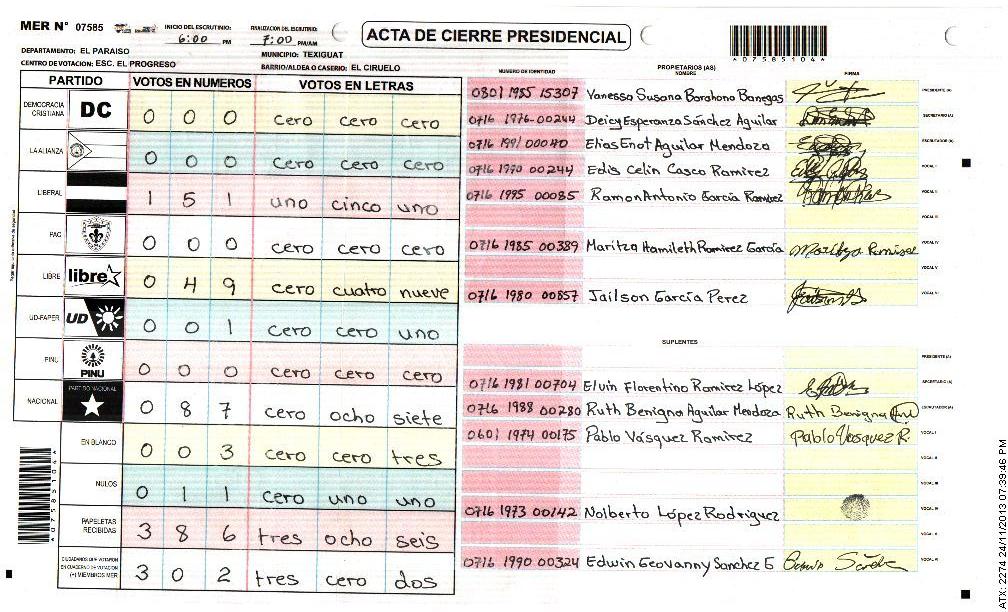 MER N° 07585
INICIO DEL ESCRUTINIO: 6:00 PM
FINALIZACION DEL ESCRUTINIO: 7:00 PM/AM
ACTA DE CIERRE PRESIDENCIAL
*07585104*
DEPARTAMENTO: EL PARAISO
MUNICIPIO: TEXIGUAT
CENTRO DE VOTACION: ESC. EL PROGRESO
BARRIO/ALDEA O CASERIO: EL CIRUELO
PARTIDO VOTOS EN NUMEROS VOTOS EN LETRAS
DEMOCRACIA CRISTIANA DC 0 0 0 cero cero cero
LA ALIANZA 0 0 0 cero cero cero
LIBERAL 1 5 1 uno cinco uno
PAC 0 0 0 cero cero cero
LIBRE libre 0 4 9 cero cuatro nueve
UD-FAPER UD 0 0 1 cero cero uno
PINU PINU 0 0 0 cero cero cero
NACIONAL PARTIDO NACIONAL 0 8 7 cero ocho siete
EN BLANCO 0 0 3 cero cero tres
NULOS 0 1 1 cero uno uno
PAPELETAS RECIBIDAS 3 8 6 tres ocho seis
CIUDADANOS QUE VOTARON EN CUADERNO DE VOTACION (+) MIEMBROS MER 3 0 2 tres cero dos
*07585104*
PROPIETARIOS (AS)
NUMERO DE IDENTIDAD NOMBRE FIRMA
0801 1985 15307 Vanessa Susana Barahona Banegas PRESIDENTE (A)
0716 1976-00244 Deicy Esperanza Sánchez Aguilar SECRETARIO (A)
0716 1991 00040 Elias Enot Aguilar Mendoza ESCRUTADOR (A)
0716 1970 00244 Edis Celin Casco Ramirez VOCAL I
0716 1995 00085 Ramon Antonio García Ramirez VOCAL II
VOCAL III
0716 1985 00389 Maritza Hamileth Ramirez García VOCAL IV
VOCAL V
0716 1980 00857 Jailson García Perez VOCAL VI
SUPLENTES
PRESIDENTE (A)
0716 1981 00704 Elvin Florentino Ramirez López SECRETARIO (A)
0716 1988 00280 Ruth Benigna Aguilar Mendoza Ruth Benigna ESCRUTADOR (A)
0601 1974 00175 Pablo Vásquez Ramirez Pablo Vasquez R. VOCAL I
VOCAL II
VOCAL III
0716 1973 00142 Nolberto López Rodriguez VOCAL IV
VOCAL V
0716 1990 00324 Edwin Geovanny Sanchez G VOCAL VI
ATX: 2274 24/11/2013 07:39:46 PM